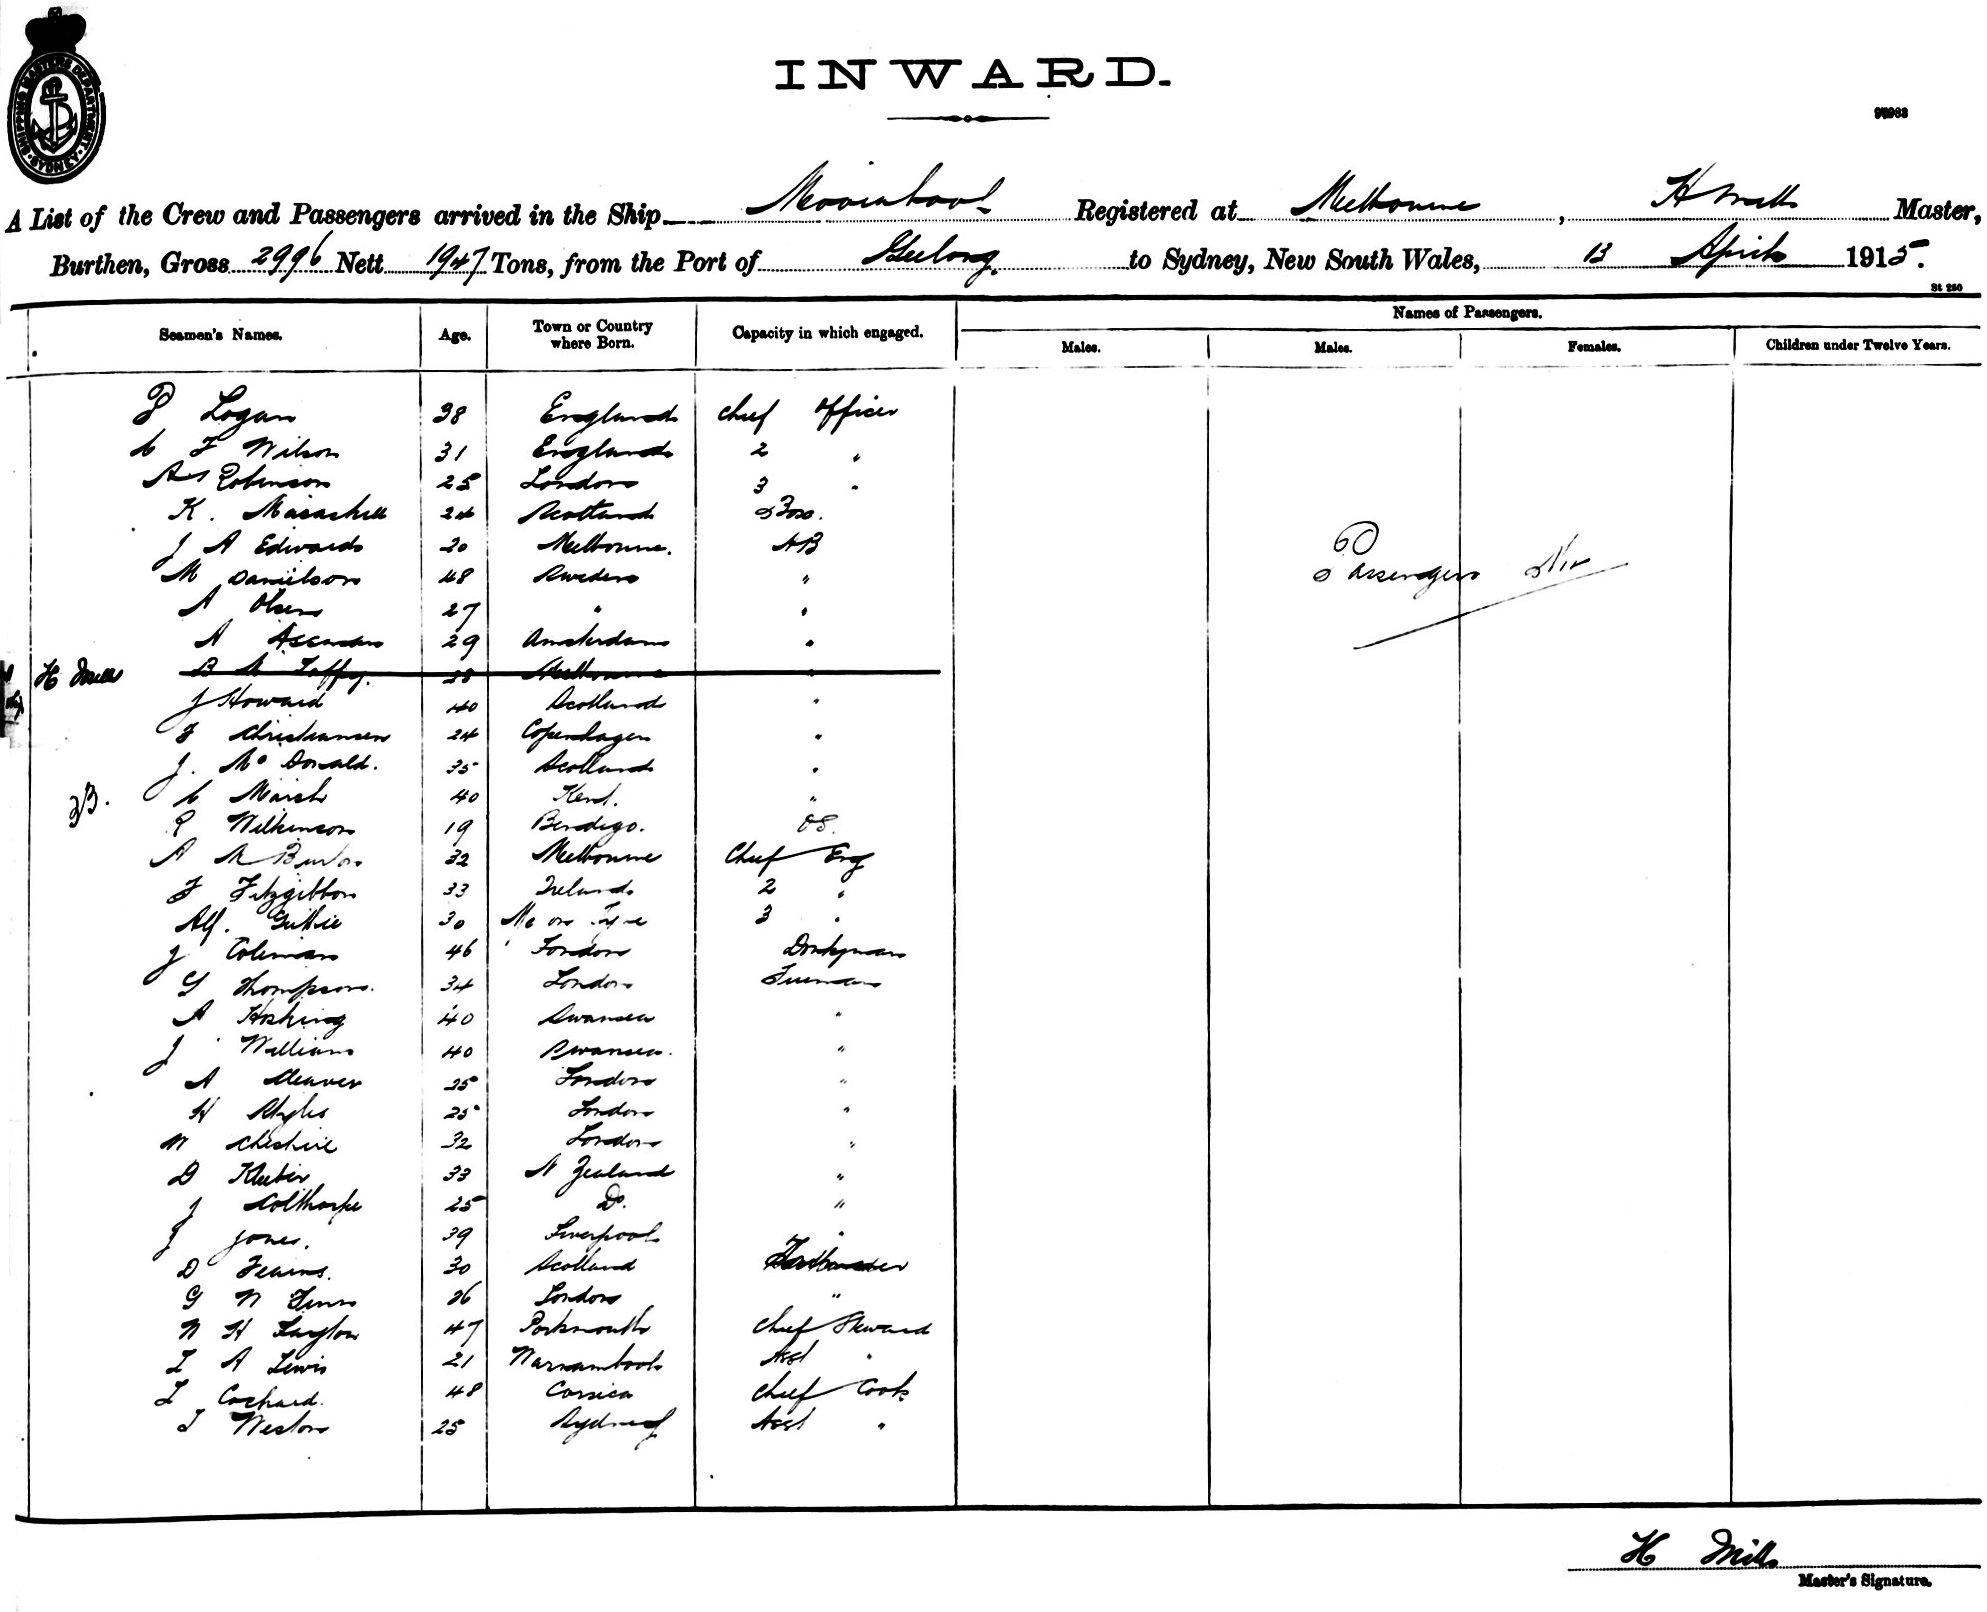 SHIPPING MASTERS DEPARTMENT. SYDNEY
INWARD.
97983
A List of the Crew and Passengers arrived in the Ship Moorabool Registered at Melbourne, H Mills Master,
Burthen, Gross 2996 Nett 1947 Tons, from the Port of Geelong. to Sydney, New South Wales, 13 April 1915.
St 250
Names of Passengers.
Seamen's Names. Age. Town or Country where Born. Capacity in which engaged. Males. Males. Females. Children under Twelve Years.
P Logan 38 England Chief Officer
C F Wilson 31 England 2 "
A Robinson 25 London 3 "
K. 24 Scotland
J A Edwards 20 Melbourne. AB
M Danielson 48 Sweden "
A Olsen 27 " "
A 29 Amsterdam "
H Mills B Mc Taffy. 28 Melbourne "
J Howard 40 Scotland "
F Christiansen 24 Copenhagen "
J. Mc Donald. 35 Scotland "
C Marsh 40 Kent. "
R Wilkinson 19 Bendigo. OS.
33.
A 32 Melbourne Chief Eng
F Fitzgibbon 33 Ireland 2 "
Alf. Guthrie 30 on Tyne 3 "
J Coleman 46 London Donkyman
G Thompson. 34 London Fireman
A Hosking 40 Swansea "
J Williams 40 Swansea. "
A Cleaver 25 London "
H Styles 25 London "
W Cheshire 32 London "
D 33 N Zealand "
J Colthorpe 25 Do. "
J Jones. 39 Liverpool "
D Fearns. 30 Scotland
G W Finn 26 London "
W H Layton 47 Portsmouth Chief Steward
L A Lewis 21 Warrnambool Asst "
L Cochard. 48 Corsica Chief Cook
T Weston 25 Sydney Asst "
Passengers Nil
H Mills
Master's Signature.